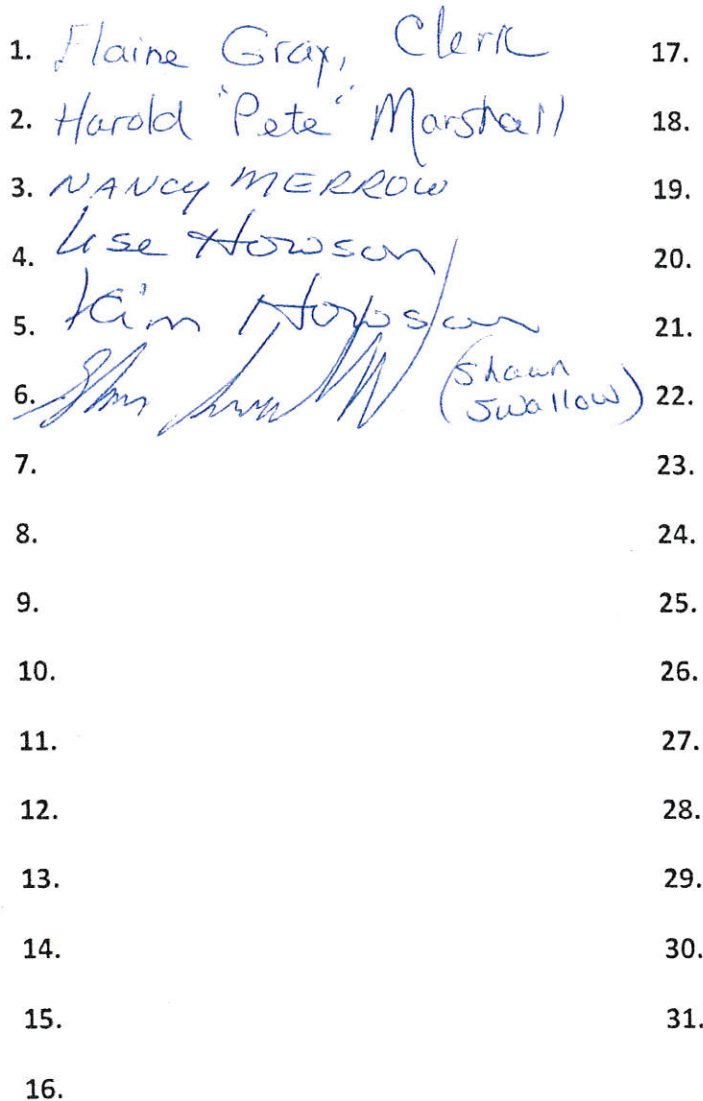 1. Elaine Gray, Clerk
2. Harold "Pete" Marshall
3. NANCY MERROW
4. Lise Howson
5. Kim Howson
6. (Shawn Swallow)
7.
8.
9.
10.
11.
12.
13.
14.
15.
16.
17.
18.
19.
20.
21.
22.
23.
24.
25.
26.
27.
28.
29.
30.
31.